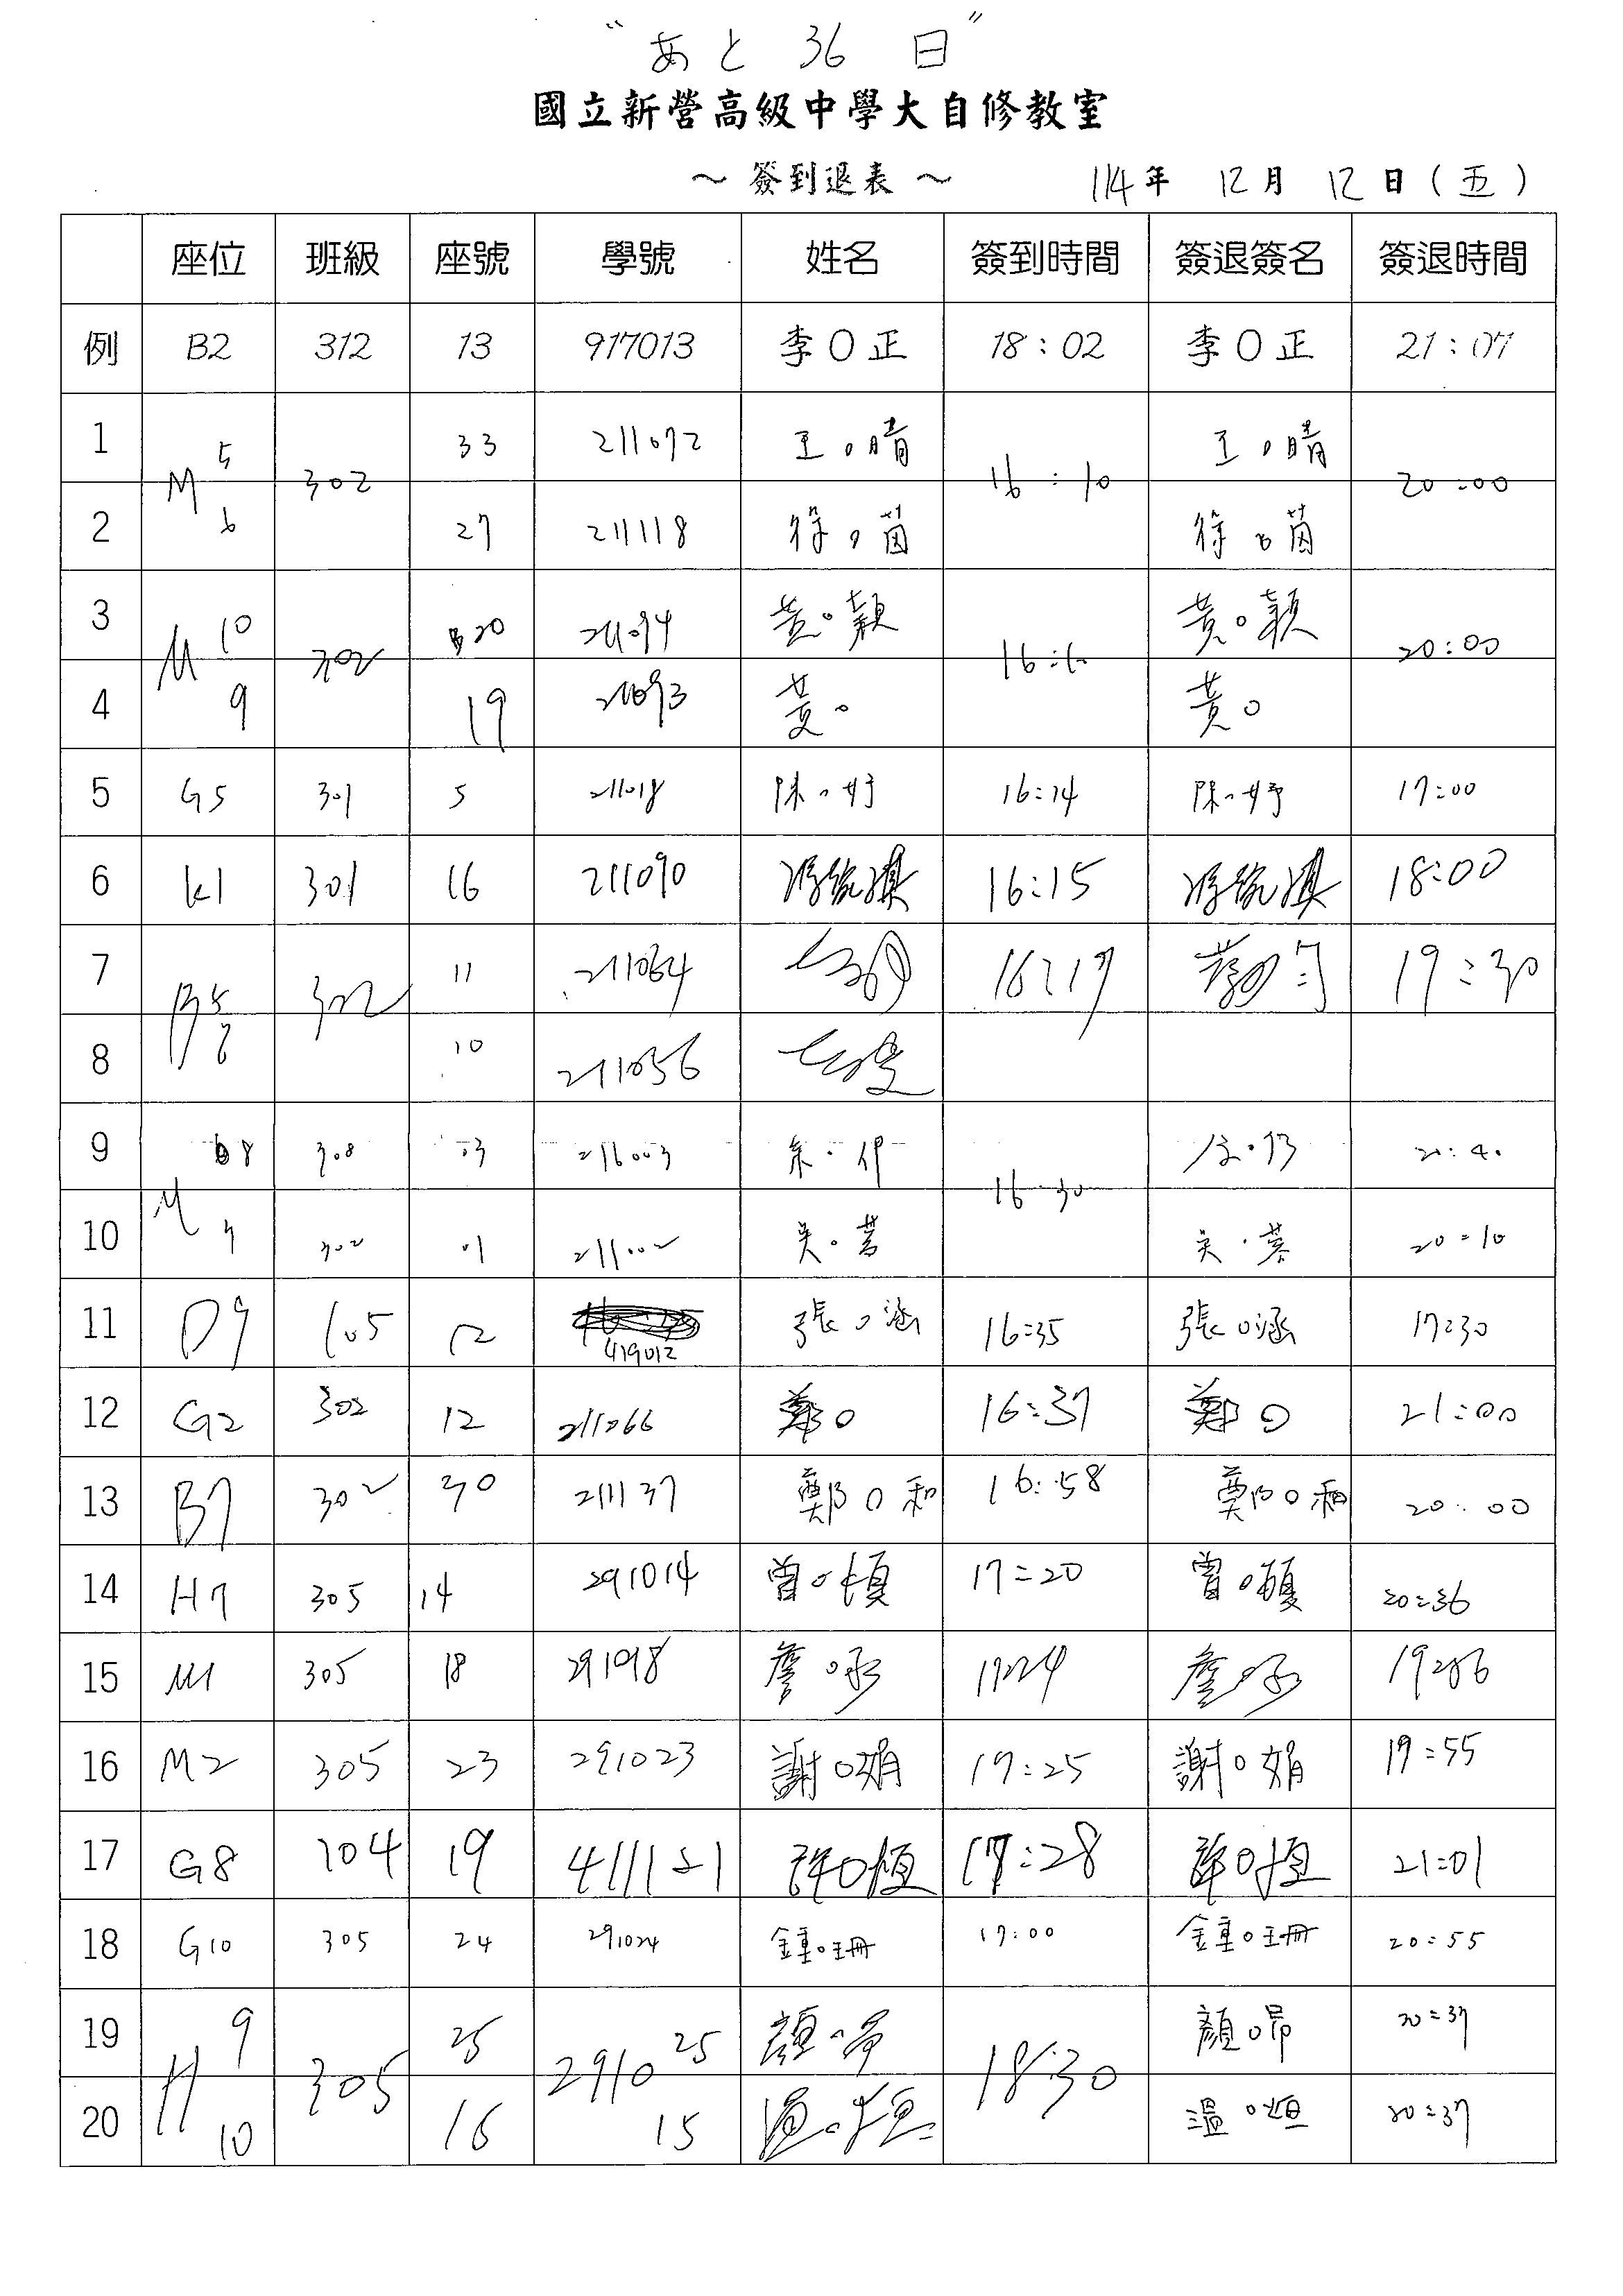 "あと 36 日"
國立新營高級中學大自修教室
～ 簽到退表 ～ 114年 12月 12日(五)
座位 班級 座號 學號 姓名 簽到時間 簽退簽名 簽退時間
例 B2 312 13 917013 李O正 18:02 李O正 21:07
1 M 5 302 33 211072 王O晴 16:10 王O晴 20:00
2 6 27 211118 徐O茵 徐O茵
3 M 10 302 20 211094 黃O穎 黃O穎 20:00
4 9 19 211093 黃O 黃O
5 G5 301 5 211018 陳O妤 16:14 陳O妤 17:00
6 K1 301 16 211090 16:15 18:00
7 B5 302 11 211064 16:19 19:30
8 6 10 211056
9 8 308 03 216003 朱O 16:30 20:40
10 M 7 302 01 211002 吳O 吳O 20:10
11 D9 105 12 419012 張O涵 16:35 張O涵 17:30
12 G2 302 12 211066 鄭O 16:37 鄭O 21:00
13 B7 302 30 211137 鄭O和 16:58 鄭O和 20:00
14 H7 305 14 291014 曾O 17:20 曾O 20:36
15 M1 305 18 詹O 17:24 詹O
16 M2 305 23 291023 謝O娟 17:25 謝O娟 19:55
17 G8 104 19 411121 許O恆 17:28 許O恆 21:01
18 G10 305 24 291024 鍾O珊 17:00 鍾O珊 20:55
19 H 9 305 25 2910 25 顏O 18:30 顏O 20:37
20 10 16 15 溫O恆 溫O 20:37